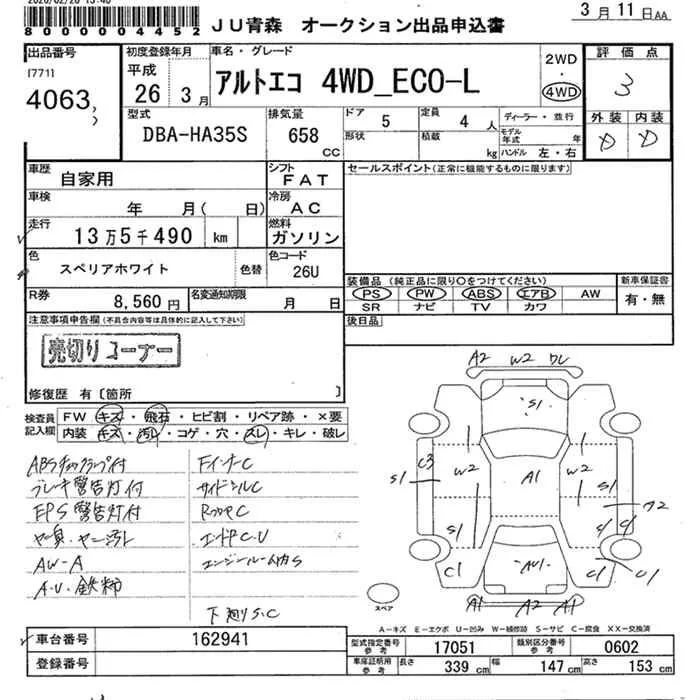 8000000004452
JU青森 オークション出品申込書
3月11日AA
出品番号
[771]
4063
初度登録年月
平成
26 3月
車名・グレード
アルトエコ 4WD_ECO-L
2WD
・
4WD
評価点
3
外装 内装
D D
型式
DBA-HA35S
排気量
658
CC
ドア
5
定員
4人
形状
積載
kg
ディーラー・並行
モデル年式 年
ハンドル 左・右
車歴
自家用
シフト
FAT
セールスポイント(正常に機能するものに限ります)
車検
年 月( 日)
冷房
AC
走行
13万5千490 km
燃料
ガソリン
色
スペリアホワイト
色替
色コード
26U
装備品 (純正品に限り○をつけてください)
PS PW ABS エアB AW
SR ナビ TV カワ
新車保証書
有・無
R券
8,560円
名変通知期限
月 日
後日品
注意事項申告欄(不具合内容等は具体的に記入して下さい)
売切りコーナー
修復歴 有〔箇所 〕
検査員
記入欄
FW キズ・飛石・ヒビ割・リペア跡・×要
内装 キズ・汚れ・コゲ・穴・スレ・キレ・破レ
ABSチェックランプ付
ブレーキ警告灯付
EPS警告灯付
ヤニ臭・ヤニ汚れ
AW-A
A・U・鉄粉
FインナーC
サイドシルC
エンドPC・U
エンジンルーム内S
下廻りS・C
A2 W2
S1
C3
S1
W2
A1
W2
S1
C1
AU1
C1
U1
A1 A2 A1
スペア
A−キズ E−エクボ U−凹み W−補修跡 S−サビ C−腐食 XX−交換済
車台番号
162941
登録番号
型式指定番号
参考
17051
類別区分番号
参考
0602
車庫証明用
参考
長さ
339 cm
幅
147 cm
高さ
153 cm